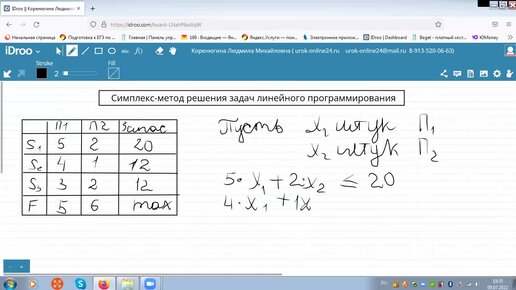 iDroo || Коренюгина Людмила Ми
https://idroo.com/board-LNaHNbdtqW
Начальная страница
Оптимизация текст
Главная | Панель упр
169 · Входящие — Ян
Яндекс.Услуги — пои
Электронное прилож
iDroo | Dashboard
Beget - платный хост
ЮMoney
iDroo
Коренюгина Людмила Михайловна ( urok-online24.ru urok-online24@mail.ru 8-913-520-06-63)
Stroke
Fill
2
Симплекс-метод решения задач линейного программирования
П1 П2 Запас
S1 5 2 20
S2 4 1 12
S3 3 2 12
F 5 6 max
Пусть x1 штук П1
x2 штук П2
5·x1+2·x2 ≤ 20
4·x1+1x
RU
19:35
09.07.2022